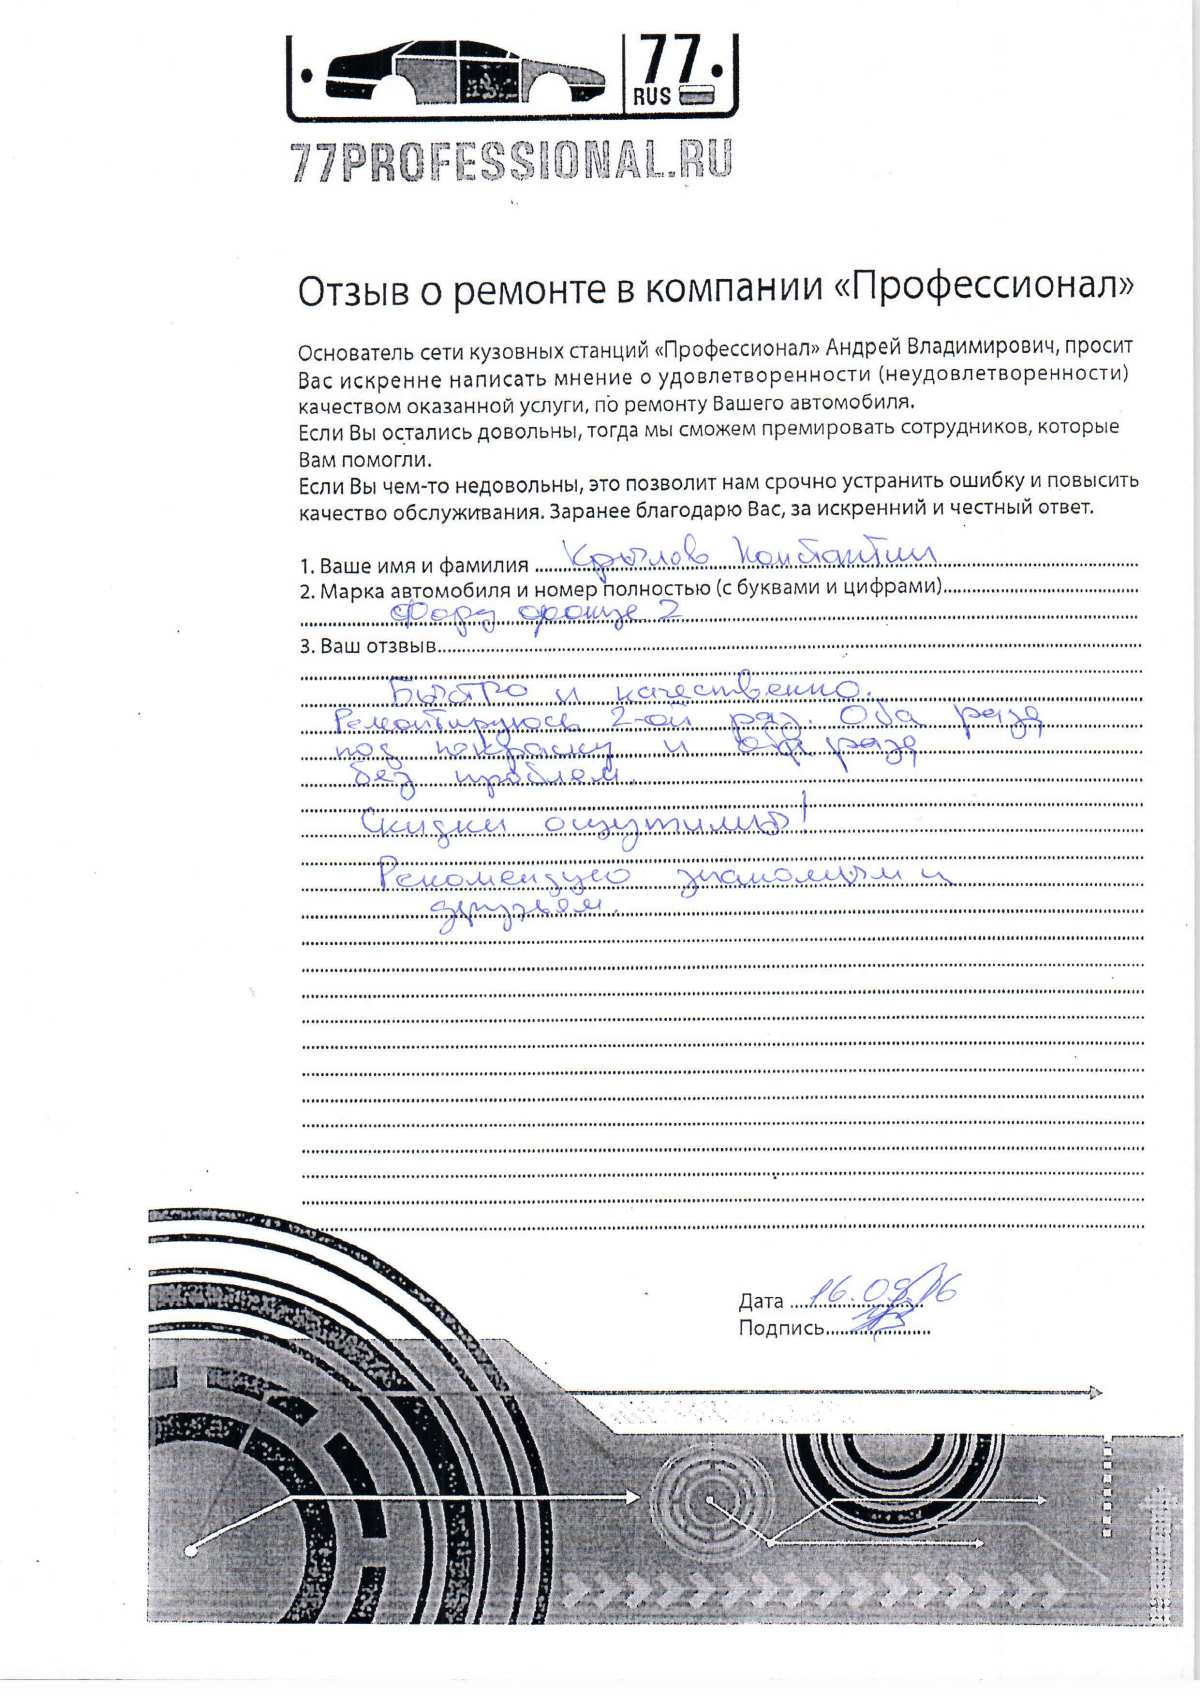 77
RUS
77PROFESSIONAL.RU
Отзыв о ремонте в компании «Профессионал»
Основатель сети кузовных станций «Профессионал» Андрей Владимирович, просит
Вас искренне написать мнение о удовлетворенности (неудовлетворенности)
качеством оказанной услуги, по ремонту Вашего автомобиля.
Если Вы остались довольны, тогда мы сможем премировать сотрудников, которые
Вам помогли.
Если Вы чем-то недовольны, это позволит нам срочно устранить ошибку и повысить
качество обслуживания. Заранее благодарю Вас, за искренний и честный ответ.
1. Ваше имя и фамилия Крылов Константин
2. Марка автомобиля и номер полностью (с буквами и цифрами)
Форд фокус 2
3. Ваш отзвыв
Быстро и качественно.
Ремонтируюсь 2-ой раз. Оба раза
под покраску и оба раза
без проблем.
Скидки ощутимые!
Рекомендую знакомым и
друзьям.
Дата 16.09.16
Подпись